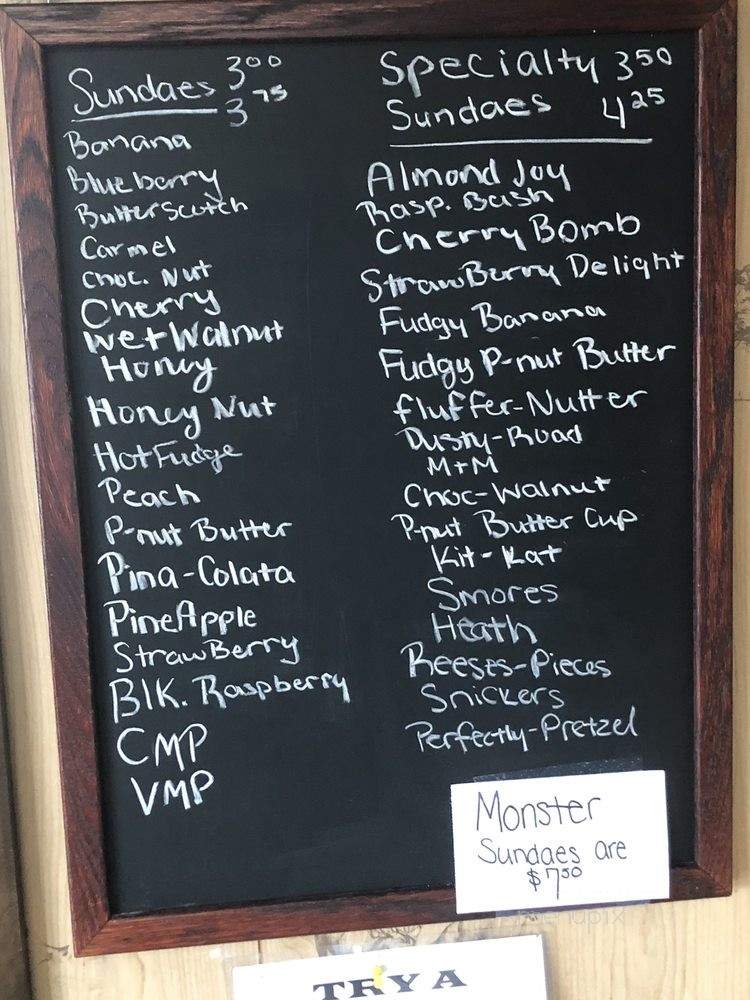 Sundaes 3.00
3.75
Banana
Blueberry
ButterScotch
Carmel
Choc. Nut
Cherry
Wet Walnut
Honey
Honey Nut
Hot Fudge
Peach
P-nut Butter
Pina-Colata
PineApple
StrawBerry
Blk. Raspberry
CMP
VMP
Specialty 3.50
Sundaes 4.25
Almond Joy
Rasp. Bash
Cherry Bomb
StrawBerry Delight
Fudgy Banana
Fudgy P-nut Butter
fluffer-Nutter
Dusty-Road
M+M
Choc-Walnut
P-nut Butter Cup
Kit-Kat
Smores
Heath
Reeses-Pieces
Snickers
Perfectly-Pretzel
Monster
Sundaes are
$7.50
TRY A